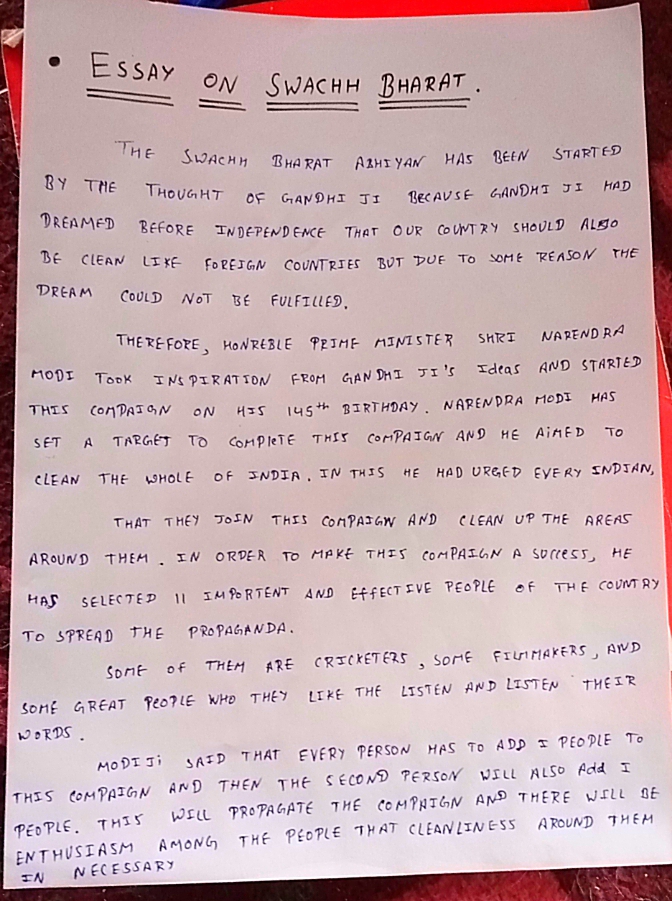 • ESSAY ON SWACHH BHARAT.
THE SWACHH BHARAT ABHIYAN HAS BEEN STARTED
BY THE THOUGHT OF GANDHI JI BECAUSE GANDHI JI HAD
DREAMED BEFORE INDEPENDENCE THAT OUR COUNTRY SHOULD ALSO
BE CLEAN LIKE FOREIGN COUNTRIES BUT DUE TO SOME REASON THE
DREAM COULD NOT BE FULFILLED.
THEREFORE, HONREBLE PRIME MINISTER SHRI NARENDRA
MODI TOOK INSPIRATION FROM GANDHI JI'S Ideas AND STARTED
THIS COMPAIGN ON HIS 145th BIRTHDAY. NARENDRA MODI HAS
SET A TARGET TO COMPLETE THIS COMPAIGN AND HE AiMED TO
CLEAN THE WHOLE OF INDIA. IN THIS HE HAD URGED EVERY INDIAN,
THAT THEY JOIN THIS COMPAIGN AND CLEAN UP THE AREAS
AROUND THEM. IN ORDER TO MAKE THIS COMPAIGN A SUCCESS, HE
HAS SELECTED 11 IMPORTENT AND EFFECTIVE PEOPLE OF THE COUNTRY
TO SPREAD THE PROPAGANDA.
SOME OF THEM ARE CRICKETERS, SOME FILMMAKERS, AND
SOME GREAT PEOPLE WHO THEY LIKE THE LISTEN AND LISTEN THEIR
WORDS.
MODI Ji SAID THAT EVERY PERSON HAS TO ADD I PEOPLE TO
THIS COMPAIGN AND THEN THE SECOND PERSON WILL ALSO Add I
PEOPLE. THIS WILL PROPAGATE THE COMPAIGN AND THERE WILL BE
ENTHUSIASM AMONG THE PEOPLE THAT CLEANLINESS AROUND THEM
IN NECESSARY